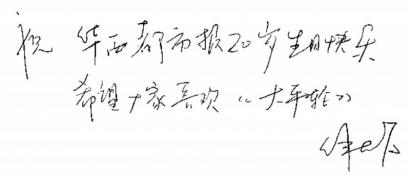 祝 华西都市报20岁生日快乐
希望大家喜欢《大车轮》